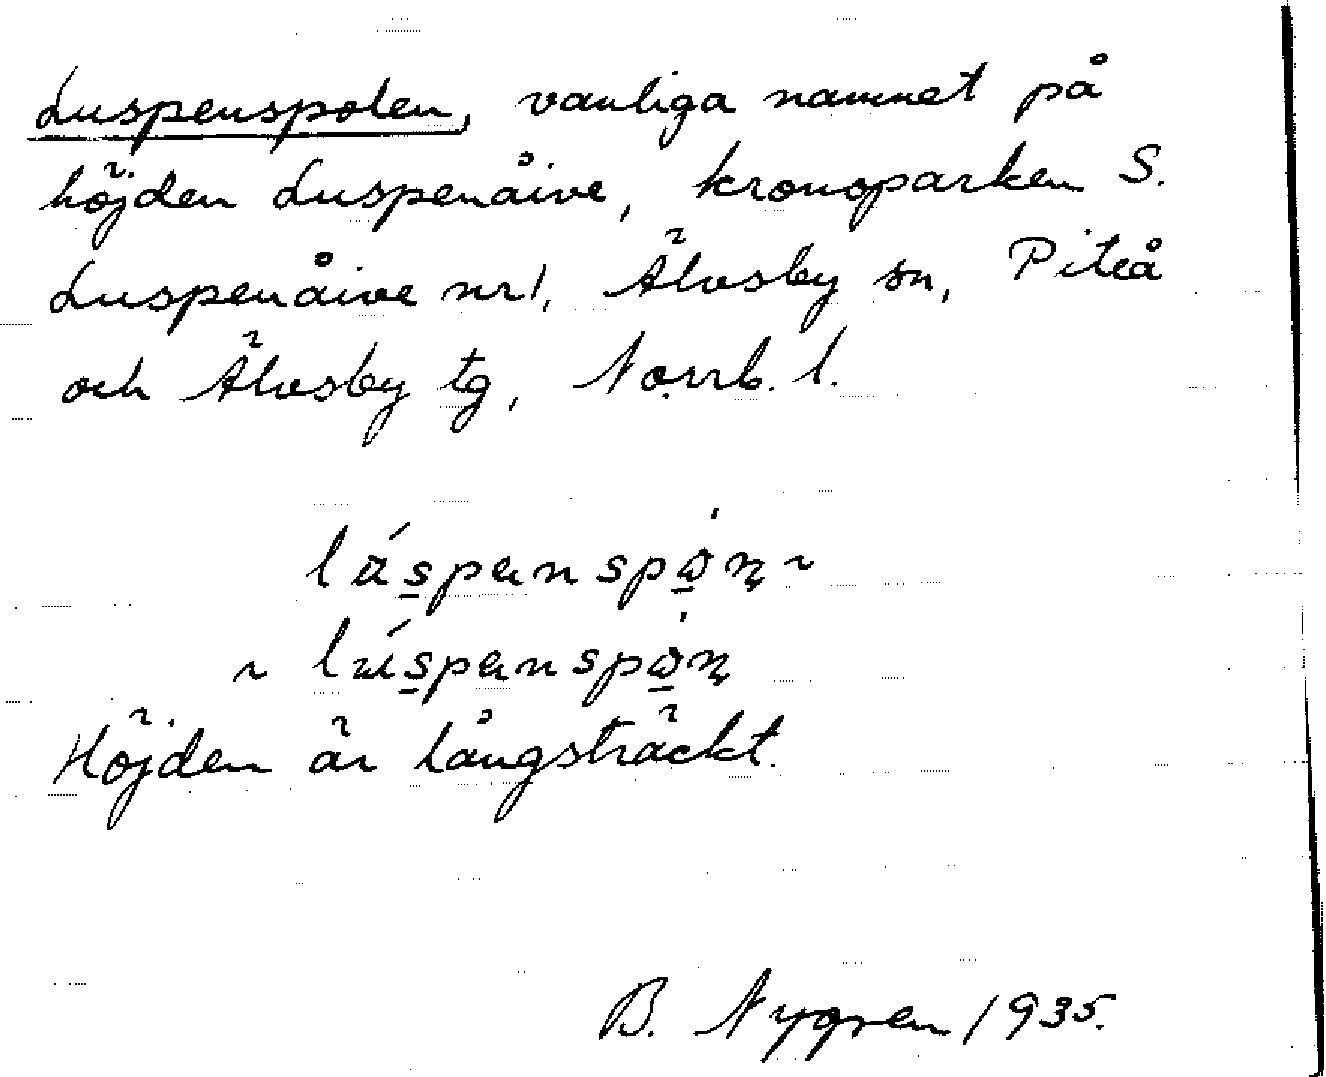 Luspenspolen, vanliga namnet på
höjden Luspenåive, kronoparken S.
Luspenåive nr 1, Älvsby sn, Piteå
och Älvsby tg, Norrb. l.
Höjden är långsträckt.
B. Nygren 1935.